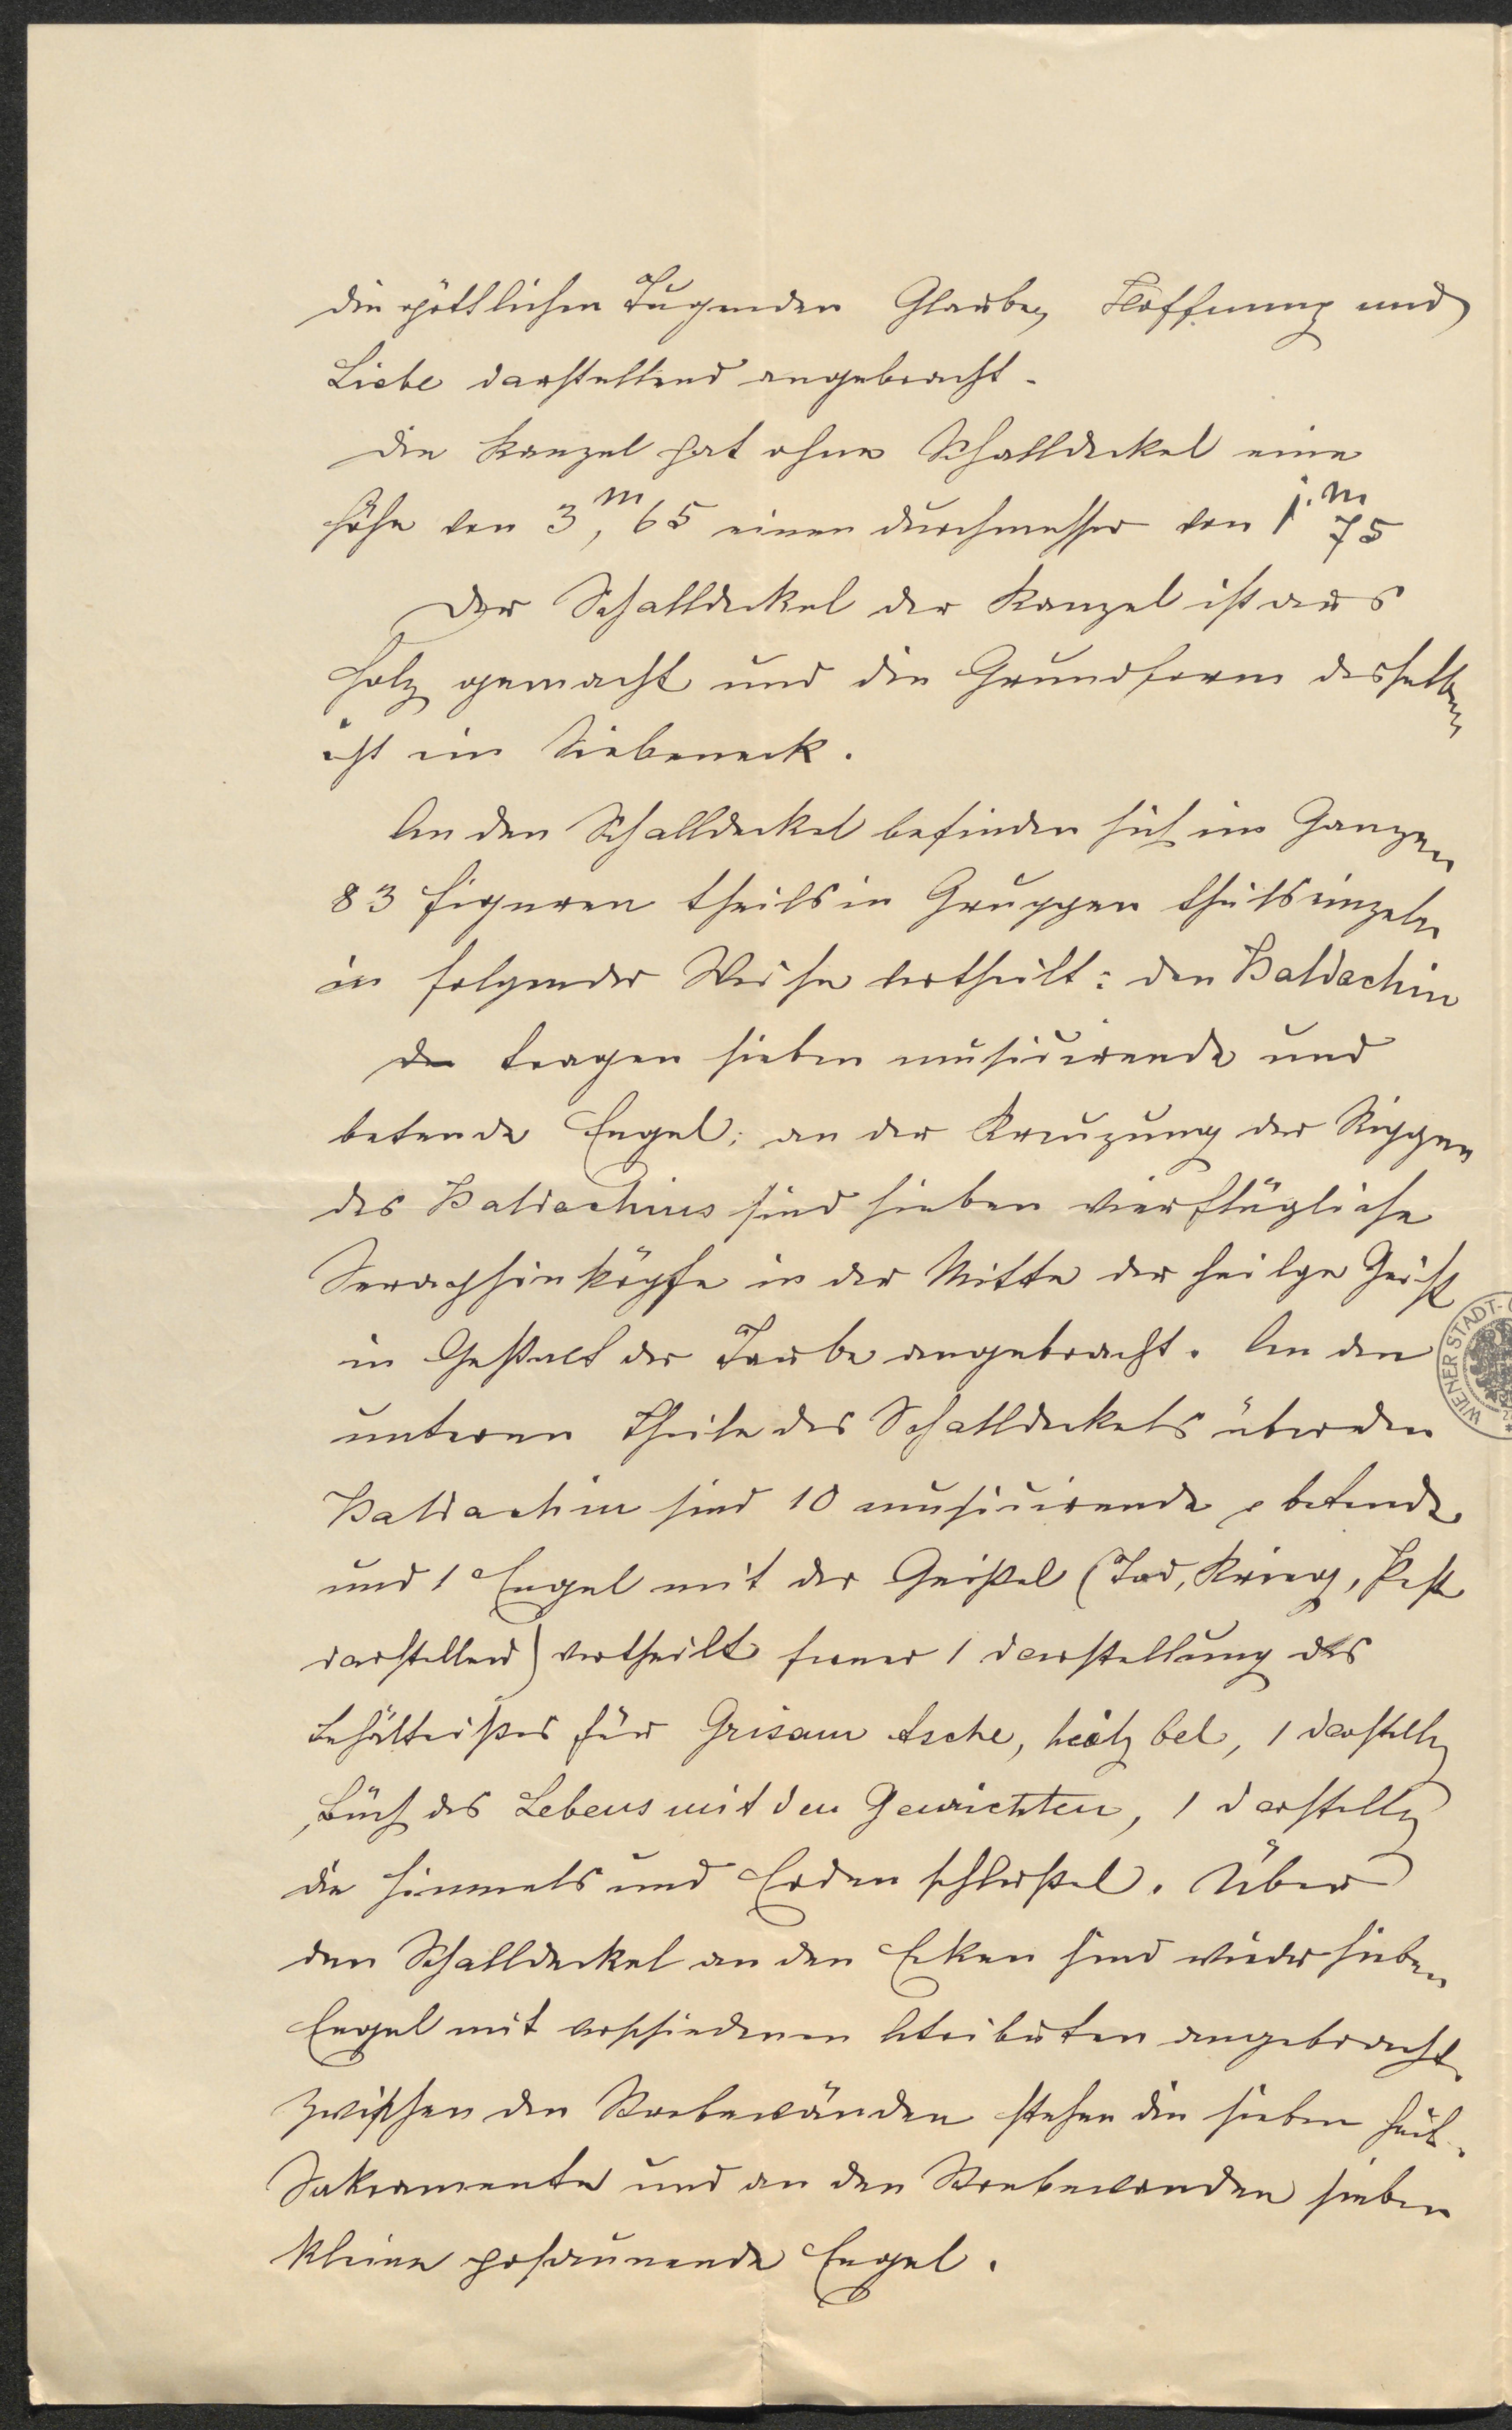 die göttlichen Tugenden Glaube, Hoffnung und
Liebe darstellend angebracht.
Die Kanzel hat ohne Schalldeckel eine
Höhe von 3,m 65 einen Durchmesser von 1.m 75
Der Schalldeckel der Kanzel ist aus
Holz gemacht und die Grundform desselben
ist ein Siebeneck.
An den Schalldeckel befinden sich im Ganzen
83 Figuren theils in Gruppen theils einzeln
in folgender Weise vertheilt: den Baldachin
tragen sieben musicirende und
betende Engel; an der Kreuzung der Rippen
des Baldachins sind sieben vierflügliche
Seraphinköpfe in der Mitte der heilge Geist
in Gestalt der Taube angebracht. An den
unteren Theile des Schalldeckels über den
Baldachin sind 10 musicirende betende
und 1 Engel mit der Geißel (Tod, Krieg, Pest
darstellend) vertheilt ferner 1 Darstellung des
Behältnißes für Grisam Asche, 1 Darstellg
Buch des Lebens mit den Gewichten, 1 Darstellg
die Himmels und Erden schlüßel. Über
den Schalldeckel an den Ecken sind wieder sieben
Engel mit verschiedenen Atributen angebracht.
Zwischen den Strebewänden stehen die sieben heil.
Sakramente und an den Strebewanden sieben
kleine posaunende Engel.
WIENER STADT-